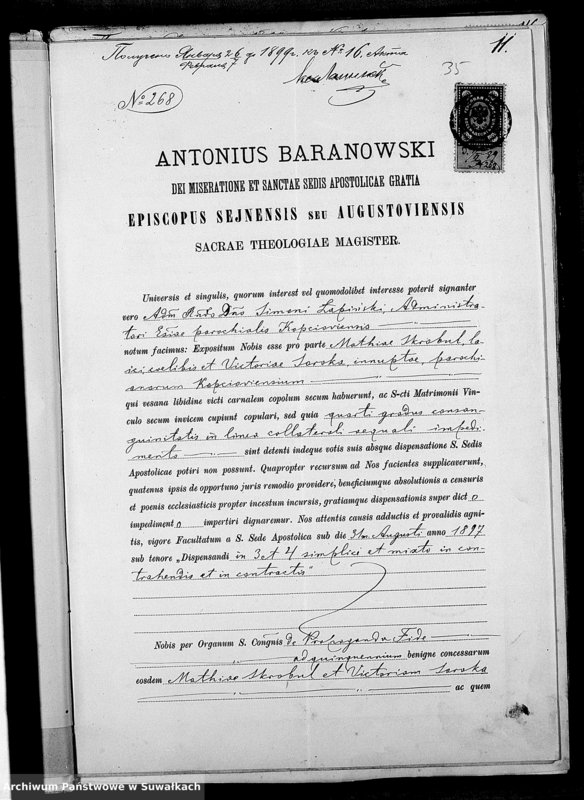 Получено Января 26 д. 1899 г. къ № 16.
11.
35
№ 268
ANTONIUS BARANOWSKI
DEI MISERATIONE ET SANCTAE SEDIS APOSTOLICAE GRATIA
EPISCOPUS SEJNENSIS SEU AUGUSTOVIENSIS
SACRAE THEOLOGIAE MAGISTER.
Universis et singulis, quorum interest vel quomodolibet interesse poterit signanter
vero Adm Rndo Dno Simoni Łapiński, Administra-
tori Eccliae parochialis Kopcioviensis
notum facimus: Expositum Nobis esse pro parte Mathiae Skrobul, la-
ici, coelibis et Victoriae Soroka, innuptae, parochi-
anorum Kopcioviensium
qui vesana libidine victi carnalem copolum secum habuerunt, ac S-cti Matrimonii Vin-
culo secum invicem cupiunt copulari, sed quia quarti gradus consan-
guinitatis in linea collaterali aequali impedi-
mento sint detenti indeque votis suis absque dispensatione S. Sedis
Apostolicae potiri non possunt. Quapropter recursum ad Nos facientes supplicaverunt,
quatenus ipsis de opportuno juris remodio providere, beneficiumque absolutionis a censuris
et poenis ecclesiasticis propter incestum incursis, gratiamque dispensationis super dicto
impedimento impertiri dignaremur. Nos attentis causis adductis et provalidis agni-
tis, vigore Facultatum a S. Sede Apostolica sub die 31m Augusti anno 1897
sub tenore „Dispensandi in 3 et 4 simplici et mixto in con-
trahendis et in contractis"
Nobis per Organum S. Congnis de Propaganda Fide
ad quinquennium benigne concessarum
eosdem Mathiae Skrobul et Victoriam Soroka
ac quem
Archiwum Państwowe w Suwałkach